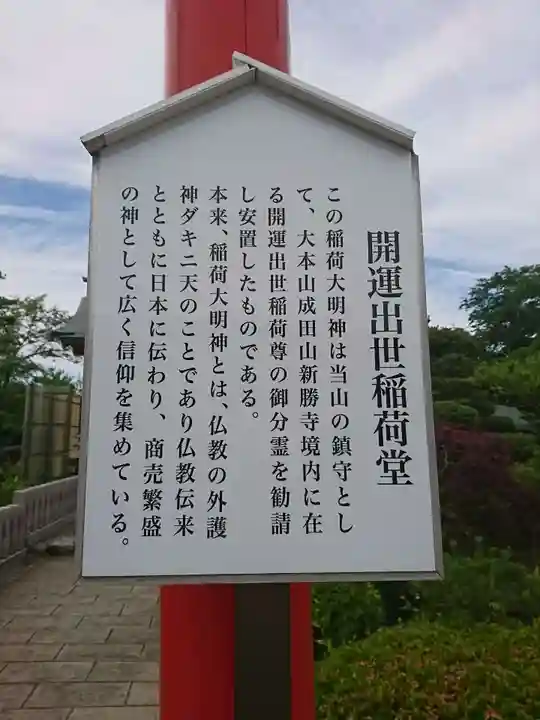 開運出世稲荷堂
この稲荷大明神は当山の鎮守とし
て、大本山成田山新勝寺境内に在
る開運出世稲荷尊の御分霊を勧請
し安置したものである。
本来、稲荷大明神とは、仏教の外護
神ダキニ天のことであり仏教伝来
とともに日本に伝わり、商売繁盛
の神として広く信仰を集めている。